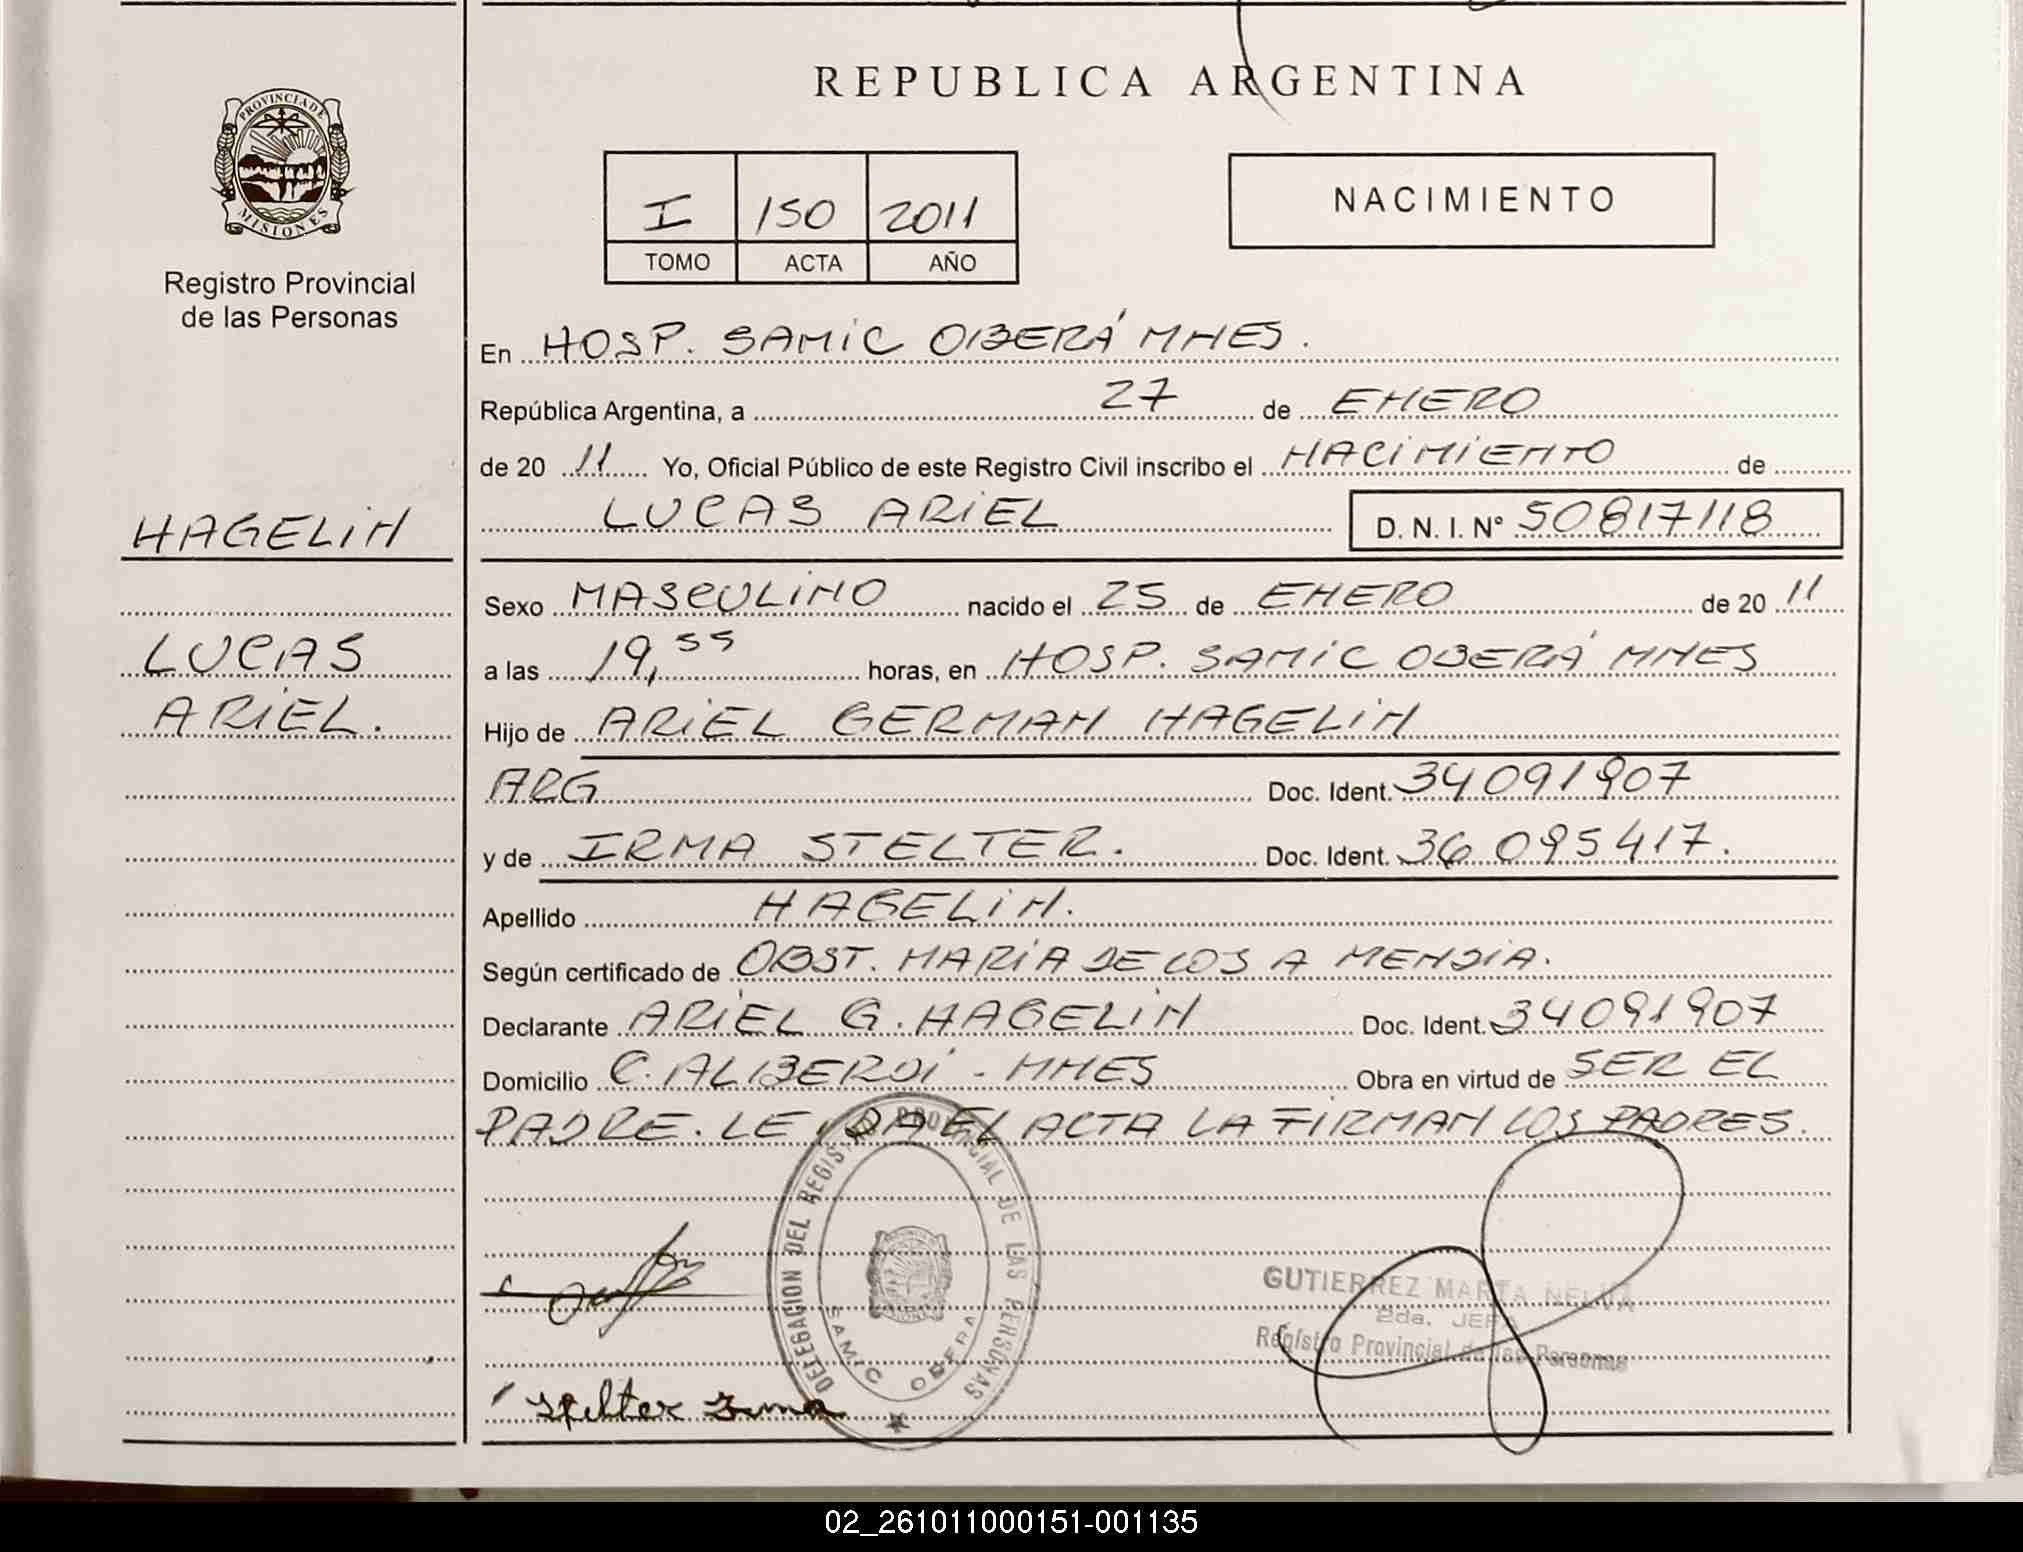 REPUBLICA ARGENTINA
PROVINCIA DE
MISIONES
Registro Provincial
de las Personas
I 150 2011
TOMO ACTA AÑO
NACIMIENTO
En HOSP. SAMIC OBERÁ MNES.
República Argentina, a 27 de ENERO
de 20 11 Yo, Oficial Público de este Registro Civil inscribo el NACIMIENTO de
LUCAS ARIEL D. N. I. Nº 50817118
HAGELIN
LUCAS
ARIEL.
Sexo MASCULINO nacido el 25 de ENERO de 20 11
a las 19,55 horas, en HOSP. SAMIC OBERÁ MNES
Hijo de ARIEL GERMAN HAGELIN
ARG Doc. Ident. 34091907
y de IRMA STELTER. Doc. Ident. 36095417.
Apellido HAGELIN.
Según certificado de OBST. MARIA DE LOS A MENDIA.
Declarante ARIEL G. HAGELIN Doc. Ident. 34091907
Domicilio C. ALBERDI - MNES Obra en virtud de SER EL
PADRE. LEIDA EL ACTA LA FIRMAN LOS PADRES.
DELEGACION DEL REGISTRO PROVINCIAL DE LAS PERSONAS
SAMIC OBERA
GUTIERREZ MARTA NELVA
2da. JEFA
Registro Provincial de las Personas
Stelter Irma
02_261011000151-001135